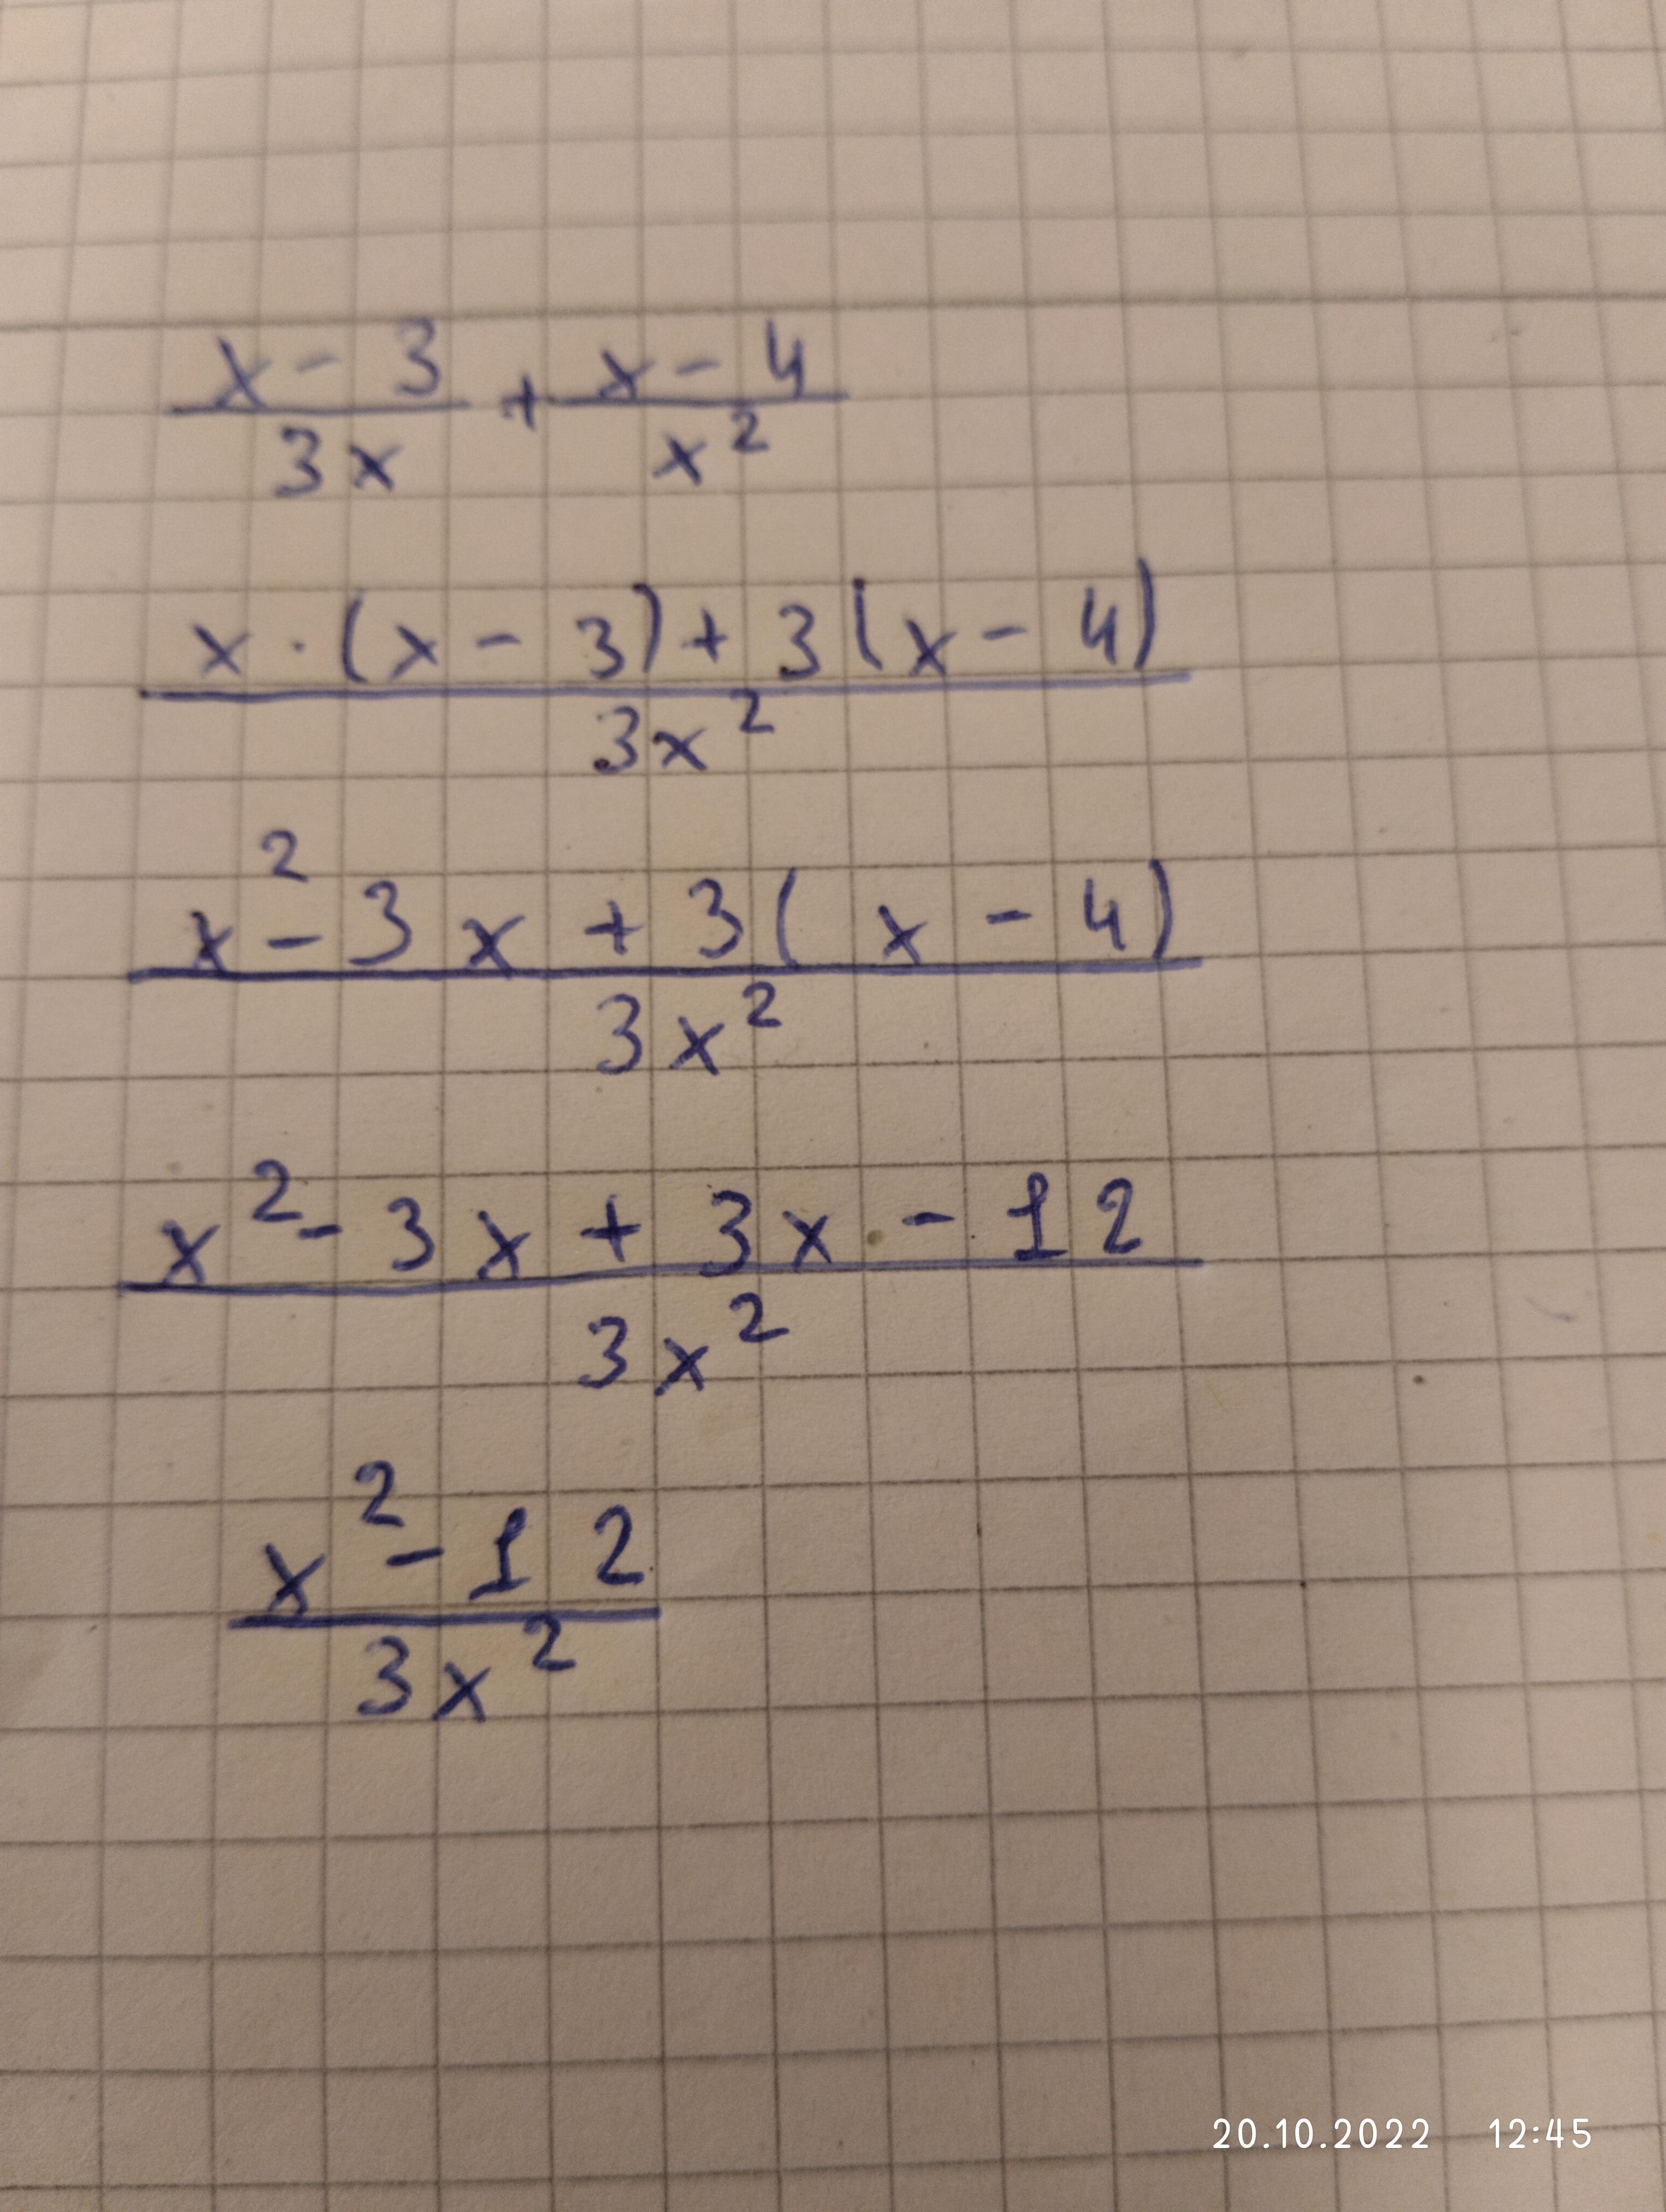 x - 3 / 3x + x - 4 / x²
x · (x - 3) + 3(x - 4) / 3x²
x² - 3x + 3(x - 4) / 3x²
x² - 3x + 3x - 12 / 3x²
x² - 12 / 3x²
20.10.2022 12:45